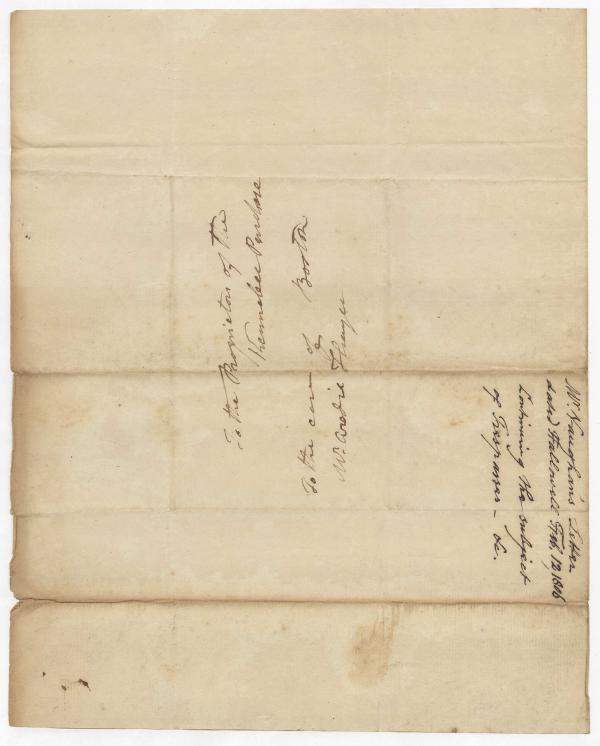 To the Proprietors of the
Kennebec Purchase
To the care of Boston
Mr. Thayer
Mr. Vaughan's Letter
dated Hallowell Feb. 12 1806
the subject
of Trespasses - &c.